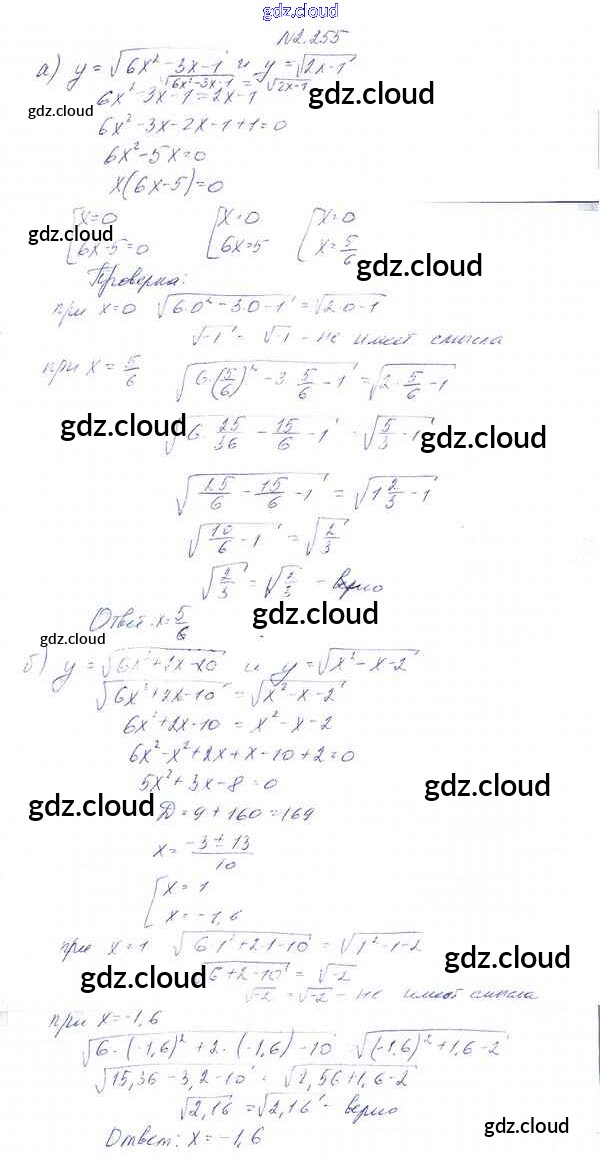 gdz.cloud
№2.255
а) y = √(6x² - 3x - 1) и y = √(2x - 1)
√(6x² - 3x - 1) = √(2x - 1)
6x² - 3x - 1 = 2x - 1
gdz.cloud
gdz.cloud
6x² - 3x - 2x - 1 + 1 = 0
6x² - 5x = 0
gdz.cloud
x(6x - 5) = 0
[x = 0 [x = 0 [x = 0
gdz.cloud
6x - 5 = 0 6x = 5 x = 5/6
gdz.cloud
Проверка:
при x = 0 √(6·0² - 3·0 - 1) = √(2·0 - 1)
√-1 = √-1 - не имеет смысла
при x = 5/6 √(6·(5/6)² - 3·5/6 - 1) = √(2·5/6 - 1)
gdz.cloud
√(6·25/36 - 15/6 - 1) √(5/3 - 1)
gdz.cloud
√(25/6 - 15/6 - 1) = √(1 2/3 - 1)
√(10/6 - 1) = √(2/3)
√(2/3) = √(2/3) - верно
Ответ: x = 5/6
gdz.cloud
gdz.cloud
б) y = √(6x² + 2x - 10) и y = √(x² - x - 2)
√(6x² + 2x - 10) = √(x² - x - 2)
6x² + 2x - 10 = x² - x - 2
6x² - x² + 2x + x - 10 + 2 = 0
5x² + 3x - 8 = 0
gdz.cloud
gdz.cloud
Д = 9 + 160 = 169
x = (-3 ± 13)/10
[x = 1
x = -1,6
при x = 1 √(6·1² + 2·1 - 10) = √(1² - 1 - 2)
gdz.cloud
gdz.cloud
√(6 + 2 - 10) = √-2
√-2 = √-2 - не имеет смысла
при x = -1,6
√(6·(-1,6)² + 2·(-1,6) - 10) √((-1,6)² + 1,6 - 2)
√(15,36 - 3,2 - 10) = √(2,56 + 1,6 - 2)
√2,16 = √2,16 - верно
gdz.cloud
gdz.cloud
Ответ: x = -1,6